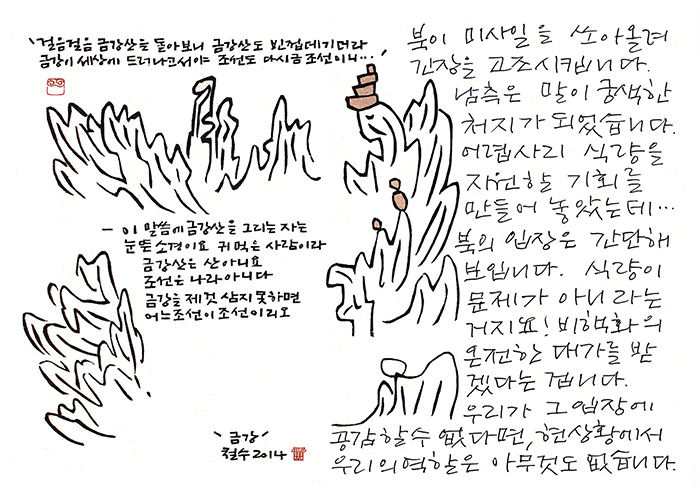 '걸음걸음 금강산을 돌아보니 금강산도 빈껍데기더라
금강이 세상에 드러나고서이야 조선도 다시금 조선이니...'
- 이 말씀에 금강산을 그리는 자는
눈뜬 소경이요 귀 먹은 사람이라
금강산은 산 아니요
조선은 나라 아니다
금강을 제것 삼지 못하면
어느 조선이 조선이리오
'금강'
철수 2014
북이 미사일을 쏘아올려
긴장을 고조시킵니다.
남측은 말이 궁색한
처지가 되었습니다.
어렵사리 식량을
지원할 기회를
만들어 놓았는데...
북의 입장은 간단해
보입니다. 식량이
문제가 아니라는
거지요! 비핵화의
온전한 대가를 받
겠다는 겁니다.
우리가 그 입장에
공감할 수 없다면, 현 상황에서
우리의 역할은 아무것도 없습니다.